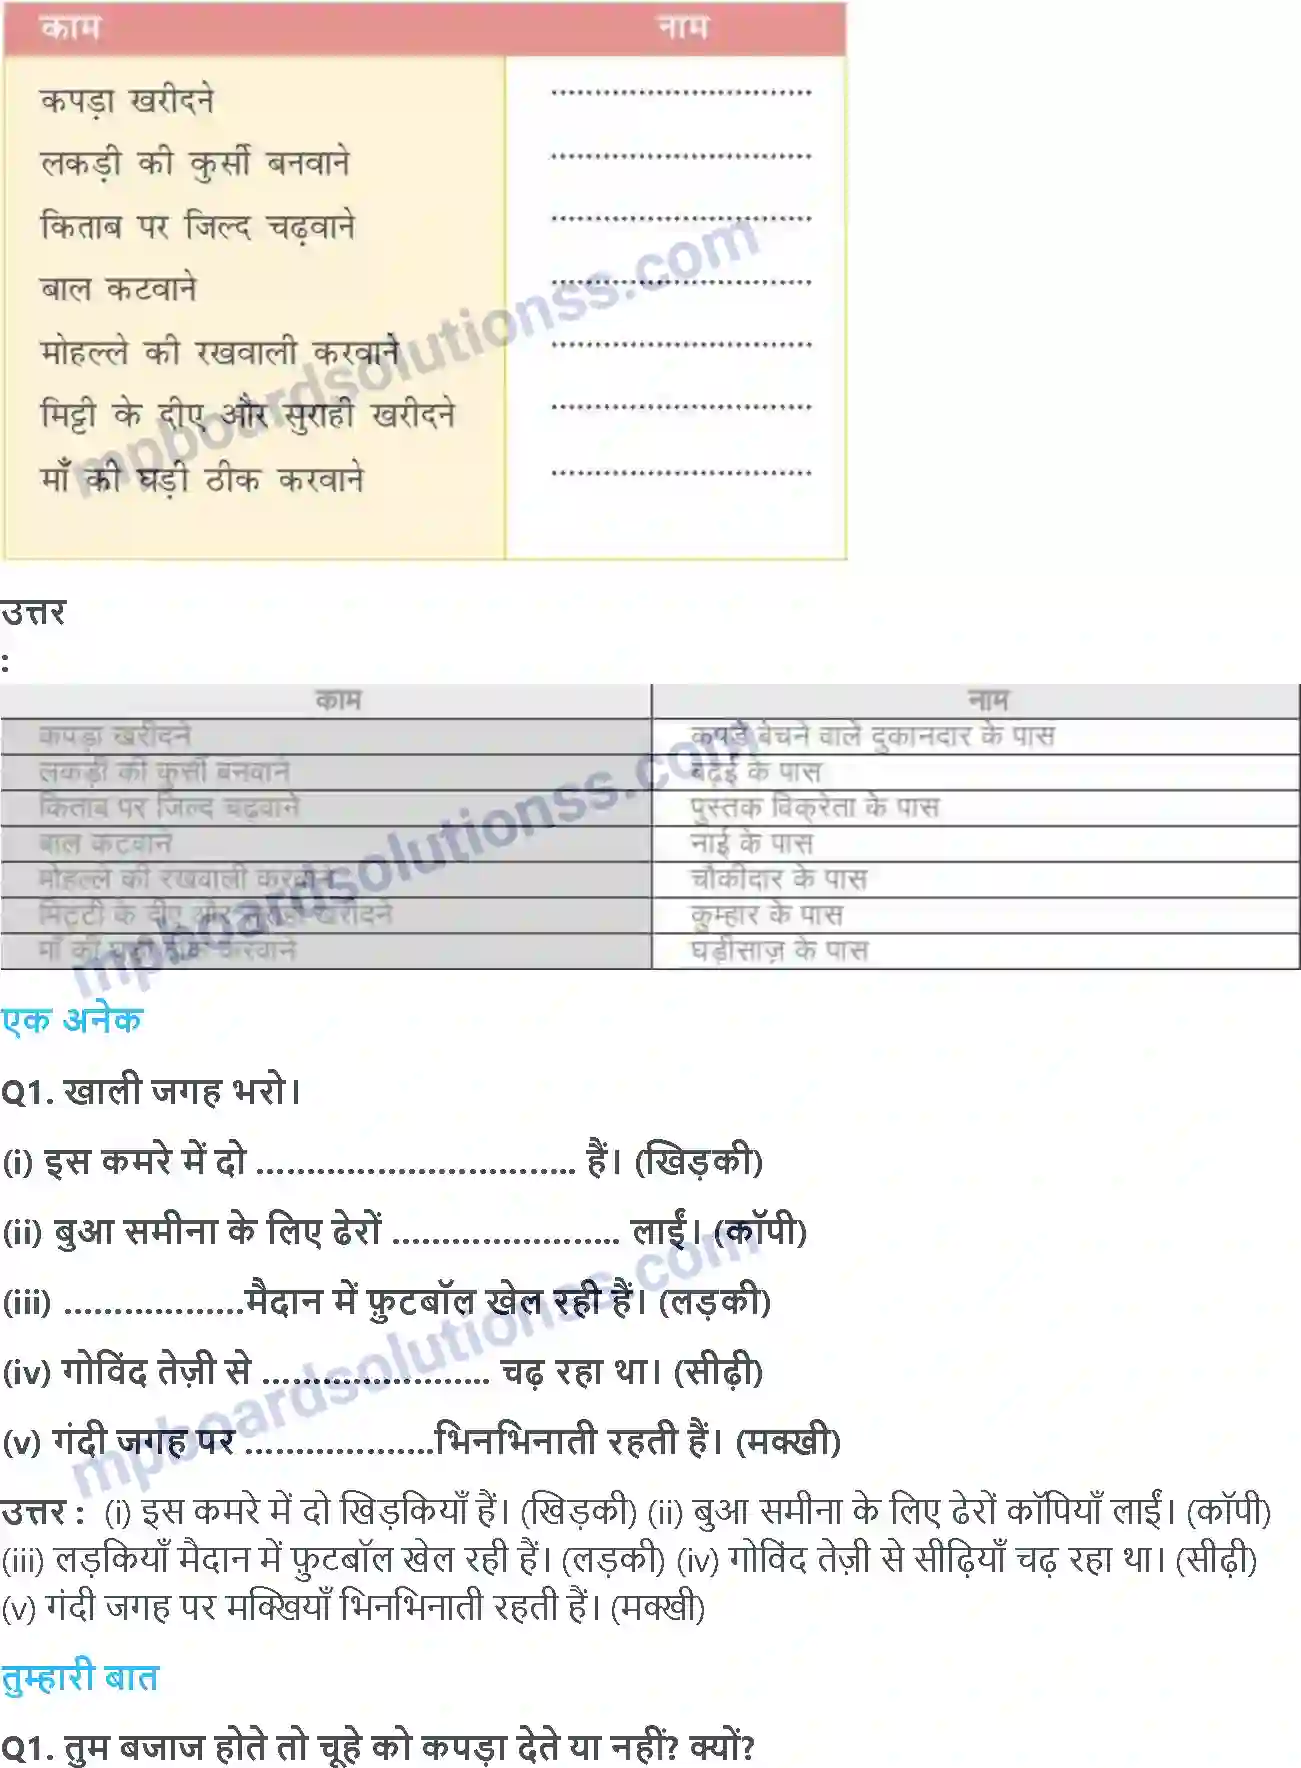 काम नाम
कपड़ा खरीदने ..............................
लकड़ी की कुर्सी बनवाने ..............................
किताब पर जिल्द चढ़वाने ..............................
बाल कटवाने ..............................
मोहल्ले की रखवाली करवाने ..............................
मिट्टी के दीए और सुराही खरीदने ..............................
माँ की घड़ी ठीक करवाने ..............................
mpboardsolutionss.com
उत्तर
:
काम नाम
कपड़ा खरीदने कपड़े बेचने वाले दुकानदार के पास
लकड़ी की कुर्सी बनवाने बढ़ई के पास
किताब पर जिल्द चढ़वाने पुस्तक विक्रेता के पास
बाल कटवाने नाई के पास
मोहल्ले की रखवाली करवाने चौकीदार के पास
मिट्टी के दीए और सुराही खरीदने कुम्हार के पास
माँ की घड़ी ठीक करवाने घड़ीसाज़ के पास
mpboardsolutionss.com
एक अनेक
Q1. खाली जगह भरो।
(i) इस कमरे में दो ................................ हैं। (खिड़की)
(ii) बुआ समीना के लिए ढेरों ....................... लाईं। (कॉपी)
(iii) ..................मैदान में फ़ुटबॉल खेल रही हैं। (लड़की)
(iv) गोविंद तेज़ी से ....................... चढ़ रहा था। (सीढ़ी)
(v) गंदी जगह पर ...................भिनभिनाती रहती हैं। (मक्खी)
mpboardsolutionss.com
उत्तर : (i) इस कमरे में दो खिड़कियाँ हैं। (खिड़की) (ii) बुआ समीना के लिए ढेरों कॉपियाँ लाईं। (कॉपी)
(iii) लड़कियाँ मैदान में फ़ुटबॉल खेल रही हैं। (लड़की) (iv) गोविंद तेज़ी से सीढ़ियाँ चढ़ रहा था। (सीढ़ी)
(v) गंदी जगह पर मक्खियाँ भिनभिनाती रहती हैं। (मक्खी)
तुम्हारी बात
Q1. तुम बजाज होते तो चूहे को कपड़ा देते या नहीं? क्यों?